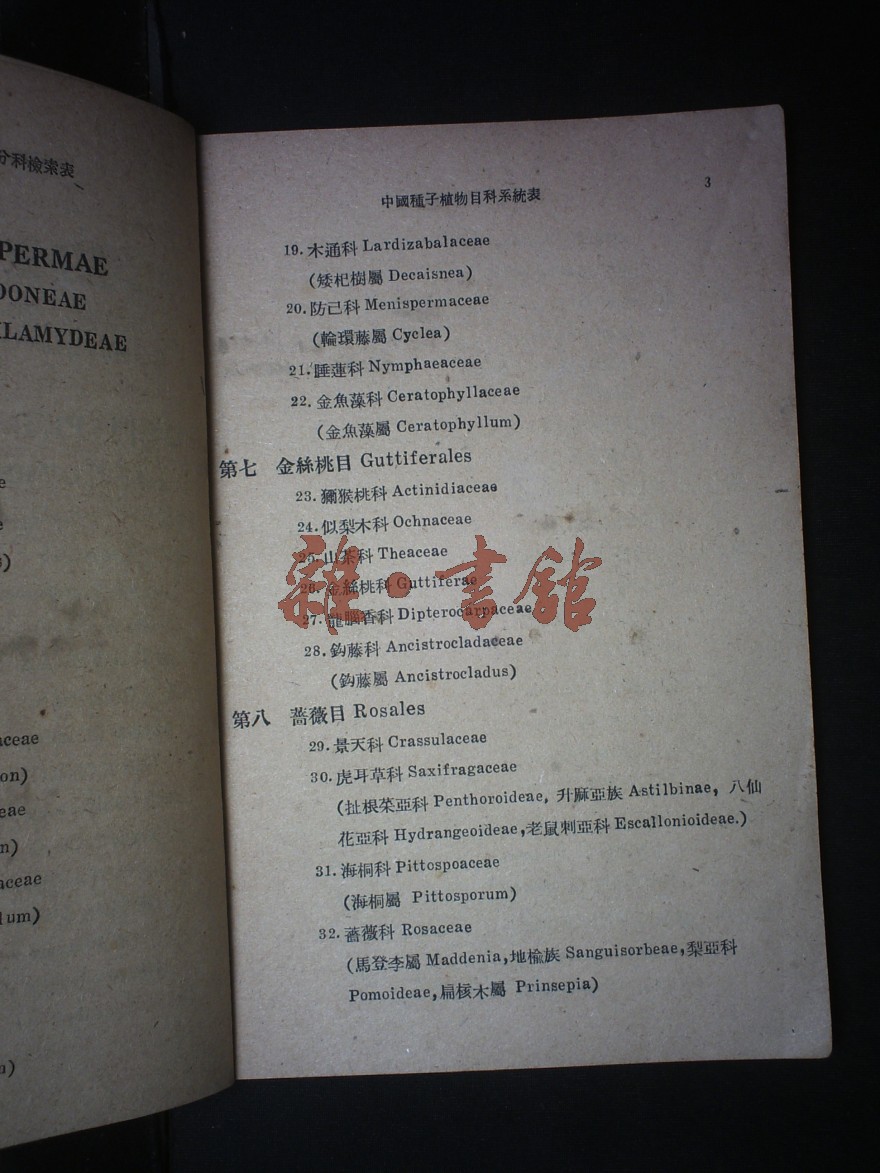 分科檢索表
PERMAE
DONEAE
LAMYDEAE
e
e
)
aceae
on)
eae
n)
aceae
lum)
)
中國種子植物目科系統表
3
19.木通科 Lardizabalaceae
(矮杞樹屬 Decaisnea)
20.防已科 Menispermaceae
(輪環藤屬 Cyclea)
21.睡蓮科 Nymphaeaceae
22.金魚藻科 Ceratophyllaceae
(金魚藻屬 Ceratophyllum)
第七 金絲桃目 Guttiferales
23.獼猴桃科 Actinidiaceae
24.似梨木科 Ochnaceae
25.山茶科 Theaceae
26.金絲桃科 Guttiferae
27.龍腦香科 Dipterocarpaceae
28.鈎藤科 Ancistrocladaceae
(鈎藤屬 Ancistrocladus)
第八 薔薇目 Rosales
29.景天科 Crassulaceae
30.虎耳草科 Saxifragaceae
(扯根菜亞科 Penthoroideae, 升麻亞族 Astilbinae, 八仙
花亞科 Hydrangeoideae,老鼠刺亞科 Escallonioideae.)
31.海桐科 Pittospoaceae
(海桐屬 Pittosporum)
32.薔薇科 Rosaceae
(馬登李屬 Maddenia,地楡族 Sanguisorbeae,梨亞科
Pomoideae,扁核木屬 Prinsepia)
雜·書館